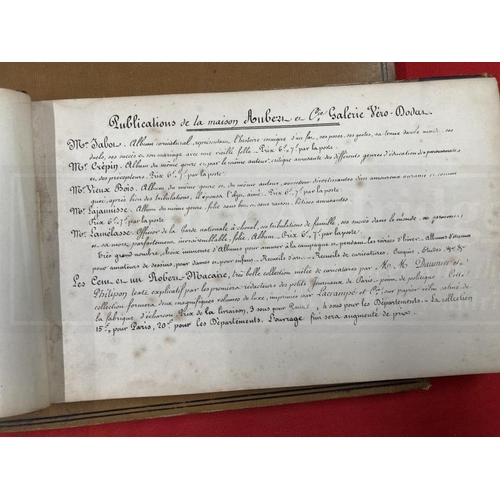 Publications de la maison Aubert et Cie Galerie Véro-Dodat
Mr Jabot. Album caricatural, représentant l'histoire comique d'un fat, ses poses, ses gestes, sa tenue dans le monde, ses
duels, ses succès et son mariage avec une vieille folle. Prix 6f, 7f par la poste.
Mr Crépin. Album du même genre et par le même auteur, critique amusante des différents genres d'éducation, des pensionnats
et des précepteurs. Prix 6f, 7f par la poste.
Mr Vieux Bois. Album du même genre et du même auteur, aventures divertissantes d'un amoureux comme
que, après bien des tribulations, il épouse l'objet aimé. 7f par la poste.
Mr Lajaunisse. Album du même genre, folie sans but et sans raison. Bêtises amusantes.
Prix 6f, 7f par la poste.
Mr Lamélasse. Officier de la Garde nationale à cheval, ses tribulations de famille, ses succès dans le monde
et sa mort, parfaitement invraisemblable, folie. Album. Prix 6f, 7f par la poste.
Très grand nombre d'Albums pour amuser à la campagne et pendant les soirées d'hiver. Albums d'amans
pour amateurs de dessins, pour dames et pour enfans. Recueils d'art. Recueils de caricatures, Croquis, Etudes &c. &c.
Les Cent et un Robert-Macaire, très belle collection inédite de caricatures par M. M. Daumier et
Philipon texte explicatif par les premiers rédacteurs des petits Journaux de Paris, point de politique. Cette
collection formera deux magnifiques volumes de luxe, imprimés par Lacrampe et Cie, sur papier vélin satiné de
la fabrique d'écharcon. Prix de la livraison, 3 sous pour Paris, 4 sous pour les Départements. La collection
15f, pour Paris, 20f pour les Départements. L'ouvrage fini sera augmenté de prix.